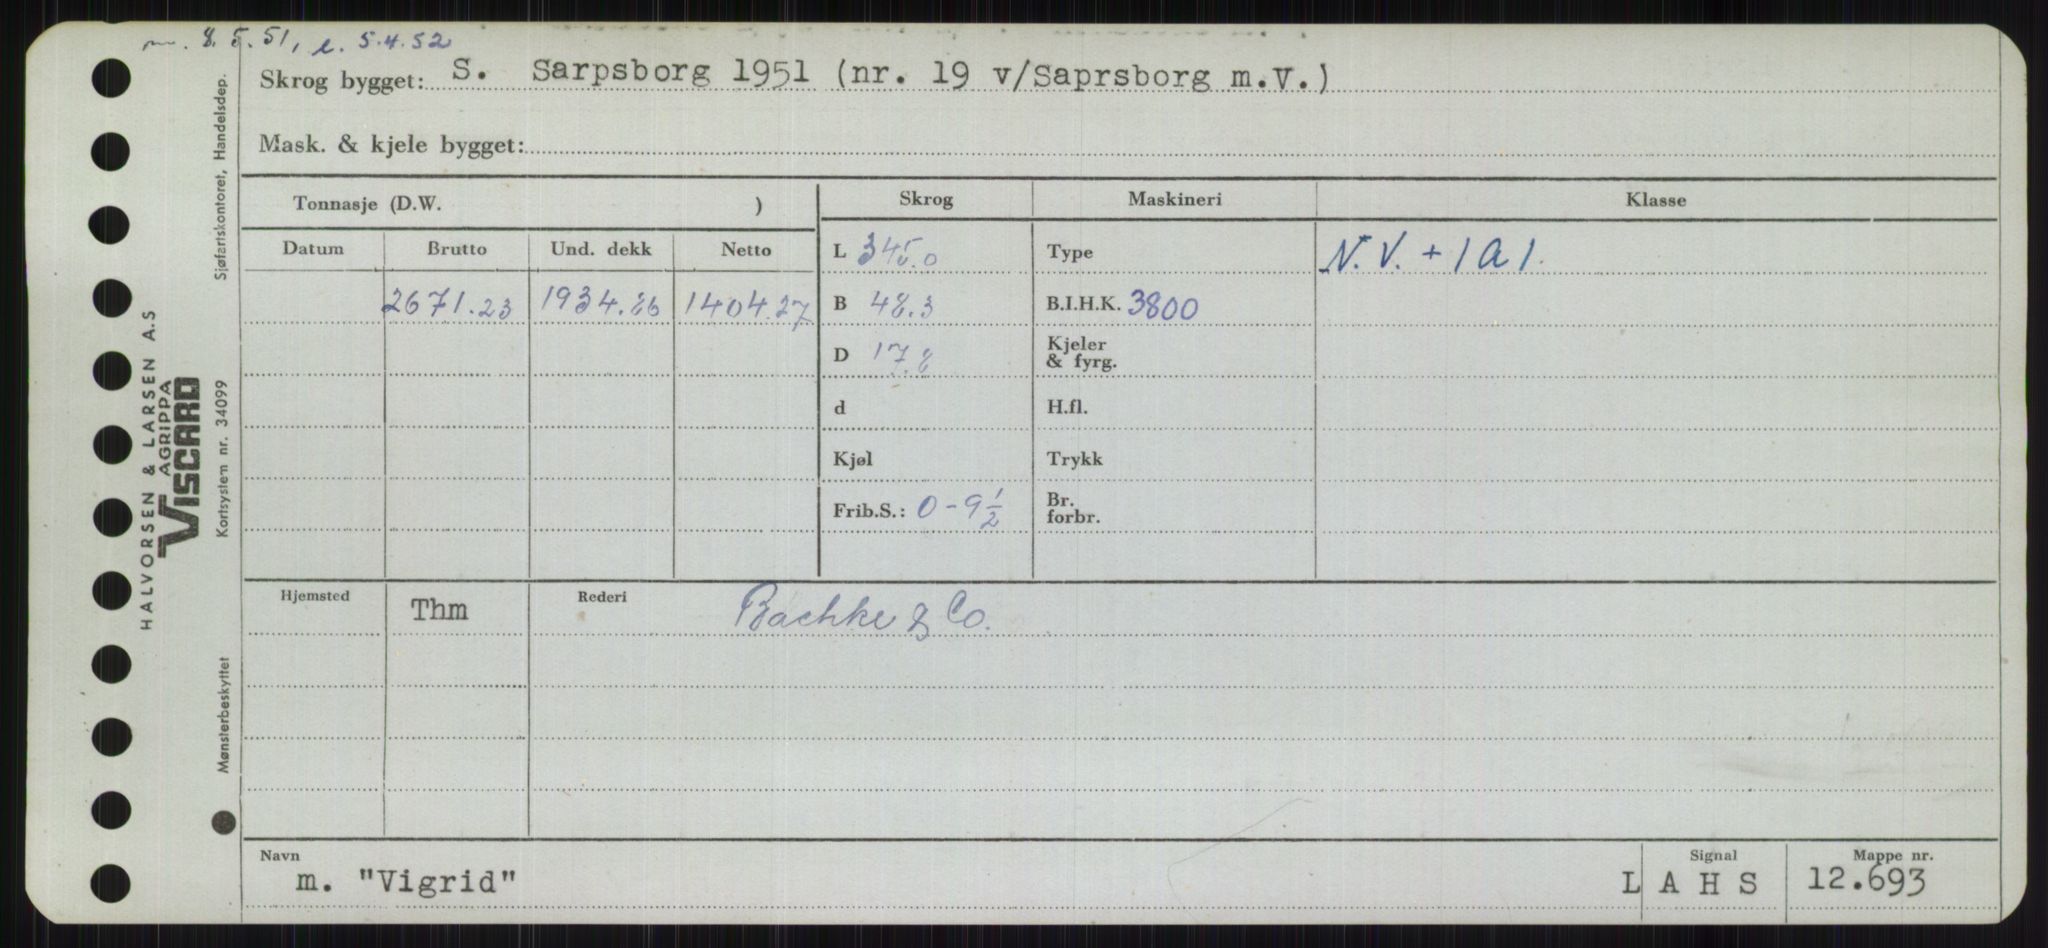 8.5.51, e. 5.4.52
Skrog bygget: S. Sarpsborg 1951 (nr. 19 v/Saprsborg m.V.)
Mask. & kjele bygget:
Tonnasje (D.W. )
Skrog Maskineri Klasse
Datum Brutto Und. dekk Netto
L 345.0 Type N.V. + 1 A 1.
2671.23 1934.86 1404.27 B 48.3 B.I.H.K. 3800
D 17.8 Kjeler
& fyrg.
d H.fl.
Kjøl Trykk
Frib.S.: 0-9 1/2 Br.
forbr.
Hjemsted Thm Rederi Bachke & Co.
Navn Signal Mappe nr.
m. "Vigrid" L A H S 12.693
HALVORSEN & LARSEN A.S
AGRIPPA
VISCARD
Mønsterbeskyttet Kortsystem nr. 34099 Sjøfartskontoret, Handelsdep.